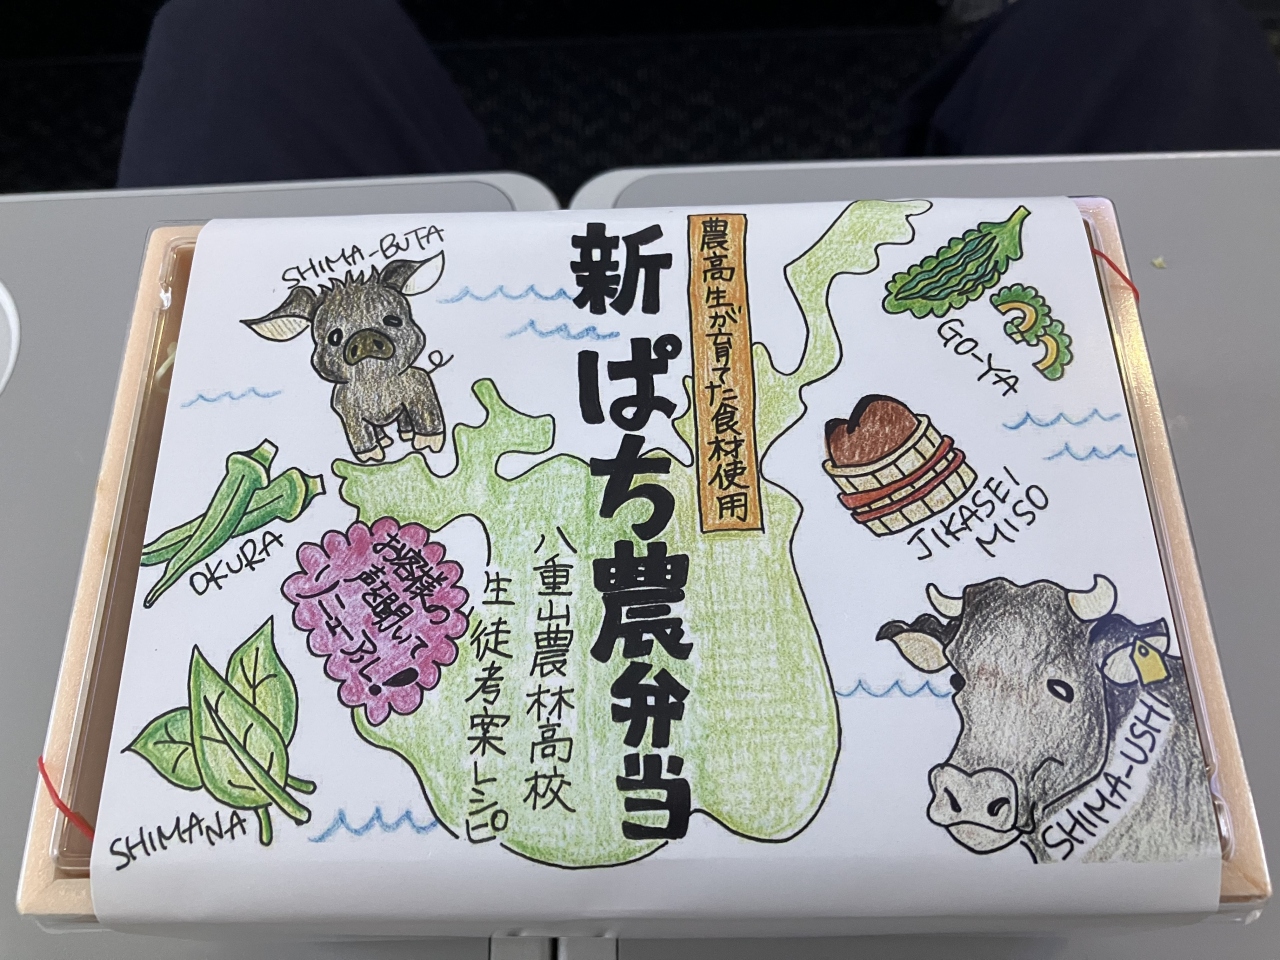 新ぱち農弁当
農高生が育てた食材使用
八重山農林高校
生徒考案レシピ
お客様の
声を聞いて
リニューアル!
SHIMA-BUTA
OKURA
SHIMANA
GO-YA
JIKASEI
MISO
SHIMA-USHI